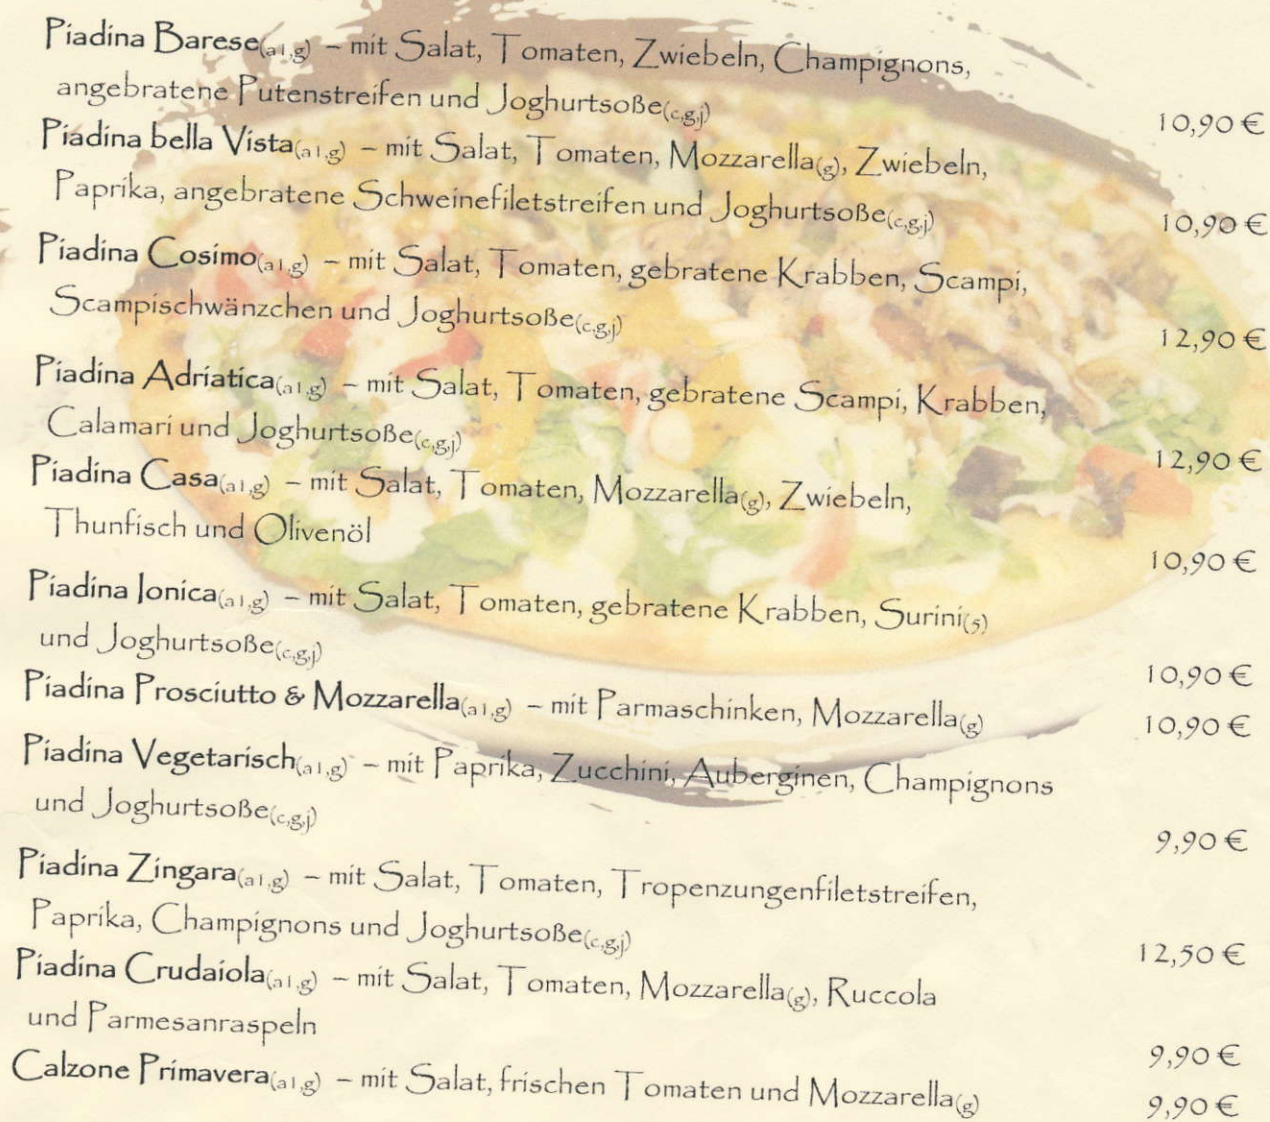 Piadina Barese(a1,g) – mit Salat, Tomaten, Zwiebeln, Champignons,
angebratene Putenstreifen und Joghurtsoße(c,g,j) 10,90 €
Piadina bella Vista(a1,g) – mit Salat, Tomaten, Mozzarella(g), Zwiebeln,
Paprika, angebratene Schweinefiletstreifen und Joghurtsoße(c,g,j) 10,90 €
Piadina Cosimo(a1,g) – mit Salat, Tomaten, gebratene Krabben, Scampi,
Scampischwänzchen und Joghurtsoße(c,g,j) 12,90 €
Piadina Adriatica(a1,g) – mit Salat, Tomaten, gebratene Scampi, Krabben,
Calamari und Joghurtsoße(c,g,j) 12,90 €
Piadina Casa(a1,g) – mit Salat, Tomaten, Mozzarella(g), Zwiebeln,
Thunfisch und Olivenöl 10,90 €
Piadina Ionica(a1,g) – mit Salat, Tomaten, gebratene Krabben, Surini(5)
und Joghurtsoße(c,g,j) 10,90 €
Piadina Prosciutto & Mozzarella(a1,g) – mit Parmaschinken, Mozzarella(g) 10,90 €
Piadina Vegetarisch(a1,g) – mit Paprika, Zucchini, Auberginen, Champignons
und Joghurtsoße(c,g,j) 9,90 €
Piadina Zingara(a1,g) – mit Salat, Tomaten, Tropenzungenfiletstreifen,
Paprika, Champignons und Joghurtsoße(c,g,j) 12,50 €
Piadina Crudaiola(a1,g) – mit Salat, Tomaten, Mozzarella(g), Ruccola
und Parmesanraspeln 9,90 €
Calzone Primavera(a1,g) – mit Salat, frischen Tomaten und Mozzarella(g) 9,90 €